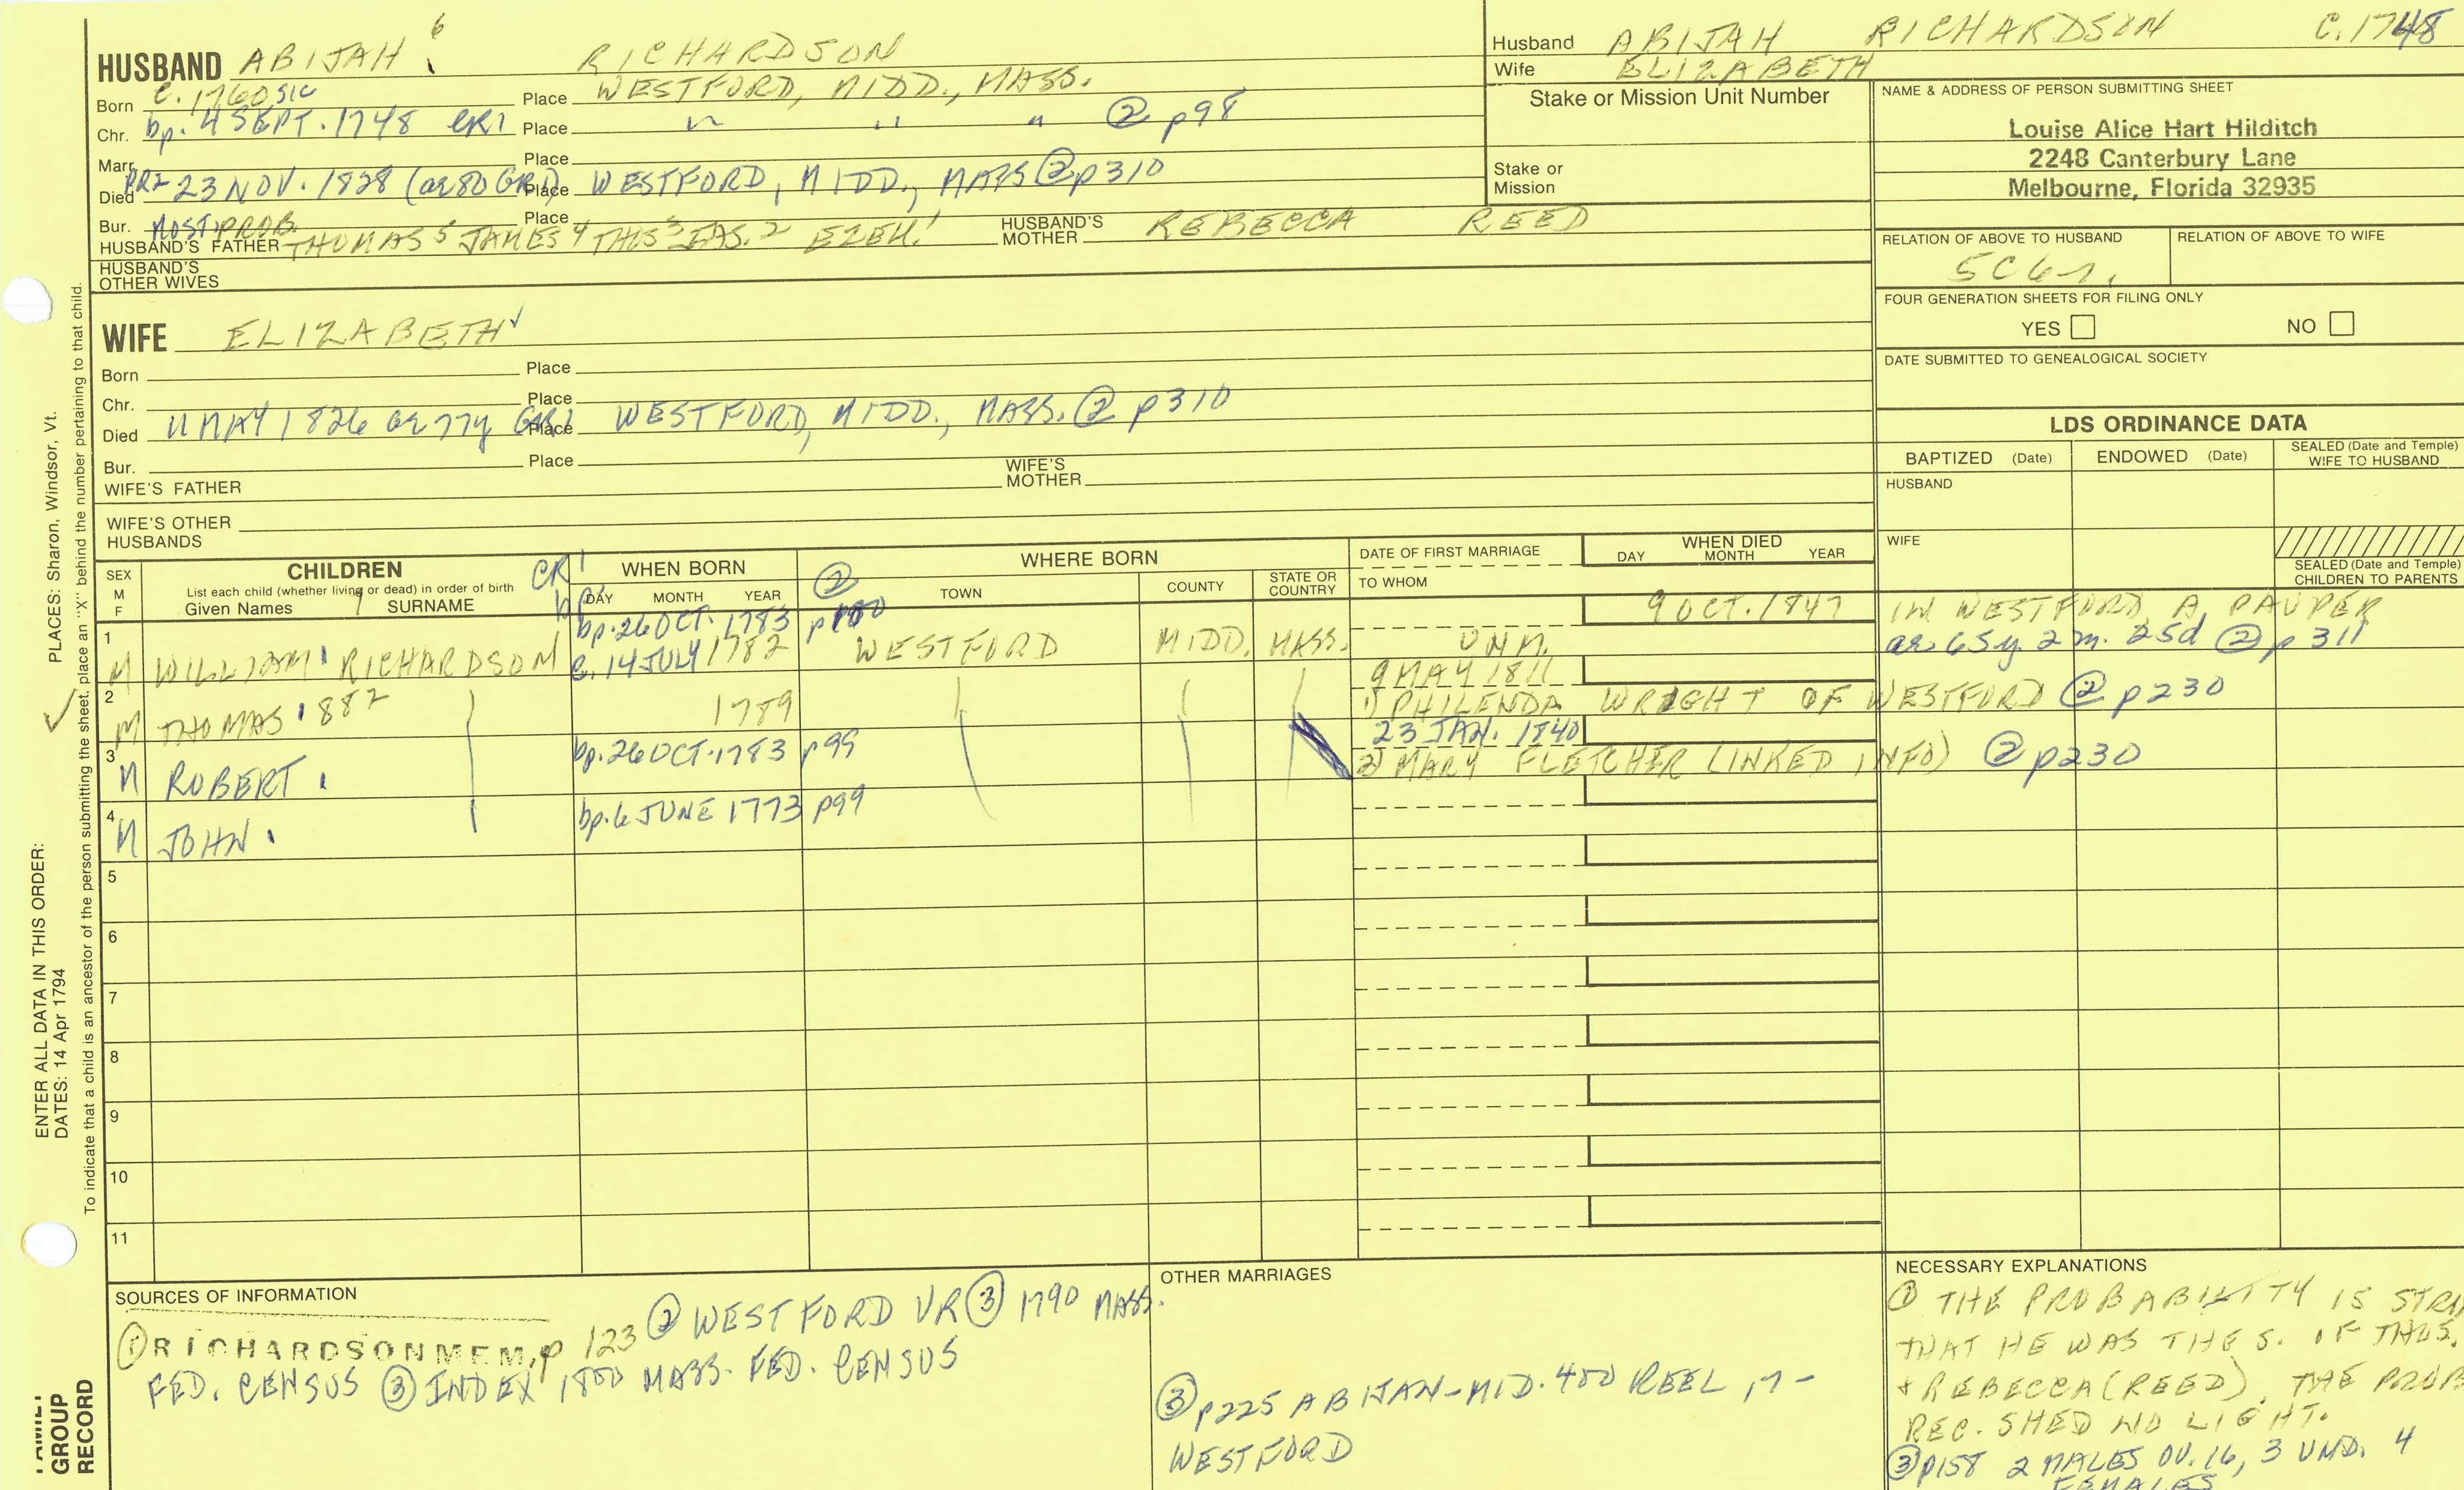 HUSBAND ABIJAH 6 RICHARDSON
Born c. 1760 SIC Place WESTFORD, MIDD., MASS.
Chr. bp. 4 SEPT. 1748 CR1 Place " " " ② p98
Marr. Place
Died PR2 23 NOV. 1828 (ae 80 GR1) Place WESTFORD, MIDD., MASS ② p310
Bur. Place
MOST PROB.
HUSBAND'S FATHER THOMAS 5 JAMES 4 THOS 3 JAS. 2 EZEK. 1 HUSBAND'S MOTHER REBECCA REED
HUSBAND'S OTHER WIVES
WIFE ELIZABETH
Born Place
Chr. Place
Died 11 MAY 1826 ae 77y GR1 Place WESTFORD, MIDD., MASS. ② p310
Bur. Place
WIFE'S FATHER WIFE'S MOTHER
WIFE'S OTHER HUSBANDS
Husband ABIJAH RICHARDSON C. 1748
Wife ELIZABETH
Stake or Mission Unit Number
Stake or Mission
NAME & ADDRESS OF PERSON SUBMITTING SHEET
Louise Alice Hart Hilditch
2248 Canterbury Lane
Melbourne, Florida 32935
RELATION OF ABOVE TO HUSBAND RELATION OF ABOVE TO WIFE
5C6
FOUR GENERATION SHEETS FOR FILING ONLY
YES NO
DATE SUBMITTED TO GENEALOGICAL SOCIETY
LDS ORDINANCE DATA
BAPTIZED (Date) ENDOWED (Date) SEALED (Date and Temple) WIFE TO HUSBAND
HUSBAND
WIFE
SEALED (Date and Temple) CHILDREN TO PARENTS
SEX M F CHILDREN
List each child (whether living or dead) in order of birth
Given Names SURNAME
CR1 bp. WHEN BORN
DAY MONTH YEAR
② WHERE BORN
TOWN COUNTY STATE OR COUNTRY
DATE OF FIRST MARRIAGE
TO WHOM
WHEN DIED
DAY MONTH YEAR
1 bp. 26 OCT. 1783 9 OCT. 1847 IN WESTFORD, A PAUPER
M WILLIAM RICHARDSON c. 14 JULY 1782 WESTFORD MIDD. MASS. UNM. ae 65y 2 m. 25d ② p 311
2 9 MAY 1811
M THOMAS 1882 1789 1) PHILENDA WRIGHT OF WESTFORD ② p230
3 bp. 26 OCT. 1783 p99 23 JAN. 1840
M ROBERT 2) MARY FLETCHER (INKED INFO) ② p230
4 bp. 6 JUNE 1773 p99
M JOHN
5
6
7
8
9
10
11
SOURCES OF INFORMATION
① RICHARDSON MEM, p 123 ② WESTFORD VR ③ 1790 MASS.
FED. CENSUS ③ INDEX 1800 MASS. FED. CENSUS
OTHER MARRIAGES
③ p225 ABIJAH-MID. 400 REEL 17-
WESTFORD
NECESSARY EXPLANATIONS
① THE PROBABILITY IS
THAT HE WAS THE S. OF THOS.
+ REBECCA (REED). THE
REC. SHED NO LIGHT.
③ p158 2 MALES OV. 16, 3 UND. 4
FEMALES
PLACES: Sharon, Windsor, Vt.
ENTER ALL DATA IN THIS ORDER:
DATES: 14 Apr 1794
To indicate that a child is an ancestor of the person submitting the sheet, place an "X" behind the number pertaining to that child.
GROUP
RECORD